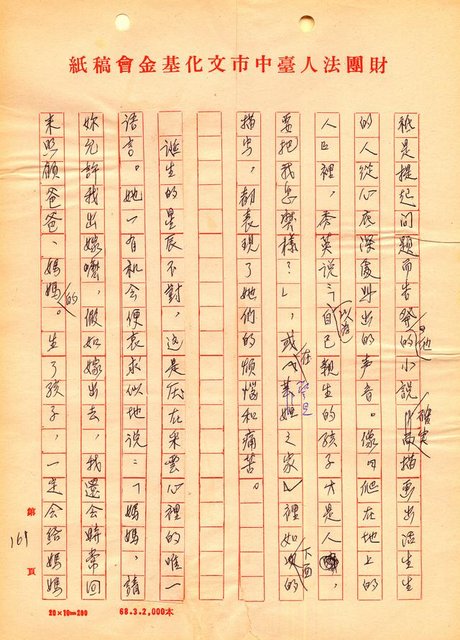 財團法人臺中市文化基金會稿紙
祇是提起問題而告發的小說，而描畫出活生生
的人從心底深處叫出的声音。像「爬在地上的
人」裡，秀英說：「自己親生的孩子才是人，
要把我怎麼樣？」，或
裡如 的
描寫，都表現了她們的煩惱和痛苦。
誕生的星辰不對，這是压在釆雲心裡的唯一
語言。她一有机会便哀求似地說：「媽媽，請
妳允許我出嫁嚒，假如嫁出去，我還会時常回
來照顧爸爸、媽媽的。生了孩子，一定会給媽媽
第 169 頁
20×10=200 68.3.2,000本